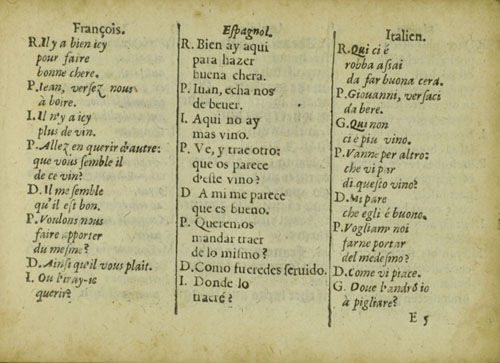 François.
R. Il y a bien icy
pour faire
bonne chere.
P. Iean, verſez nous
à boire.
I. Il n'y a icy
plus de vin.
P. Allez en querir d'autre:
que vous ſemble il
de ce vin?
D. Il me ſemble
qu'il eſt bon.
P. Voulons nous
faire apporter
du meſme?
D. Ainſi qu'il vous plait.
I. Ou l'iray-ie
querir?
Eſpagnol.
R. Bien ay aqui
para hazer
buena chera.
P. Iuan, echa nos
de beuer.
I. Aqui no ay
mas vino.
P. Ve, y trae otro:
que os parece
d'eſte vino?
D A mi me parece
que es bueno.
P. Queremos
mandar traer
de lo miſmo?
D. Como fueredes ſeruido.
I. Donde lo
traeré?
Italien.
R. Qui ci é
robba aſſai
da far buona cera.
P. Giouanni, verſaci
da bere.
G. Qui non
ci e piu vino.
P. Vanne per altro:
che vi par
di queſto vino?
D. Mi pare
che egli é buono.
P. Vogliam' noi
farne portar
del medeſmo?
D. Come vi piace.
G. Doue l'andró io
à pigliare?
E 5